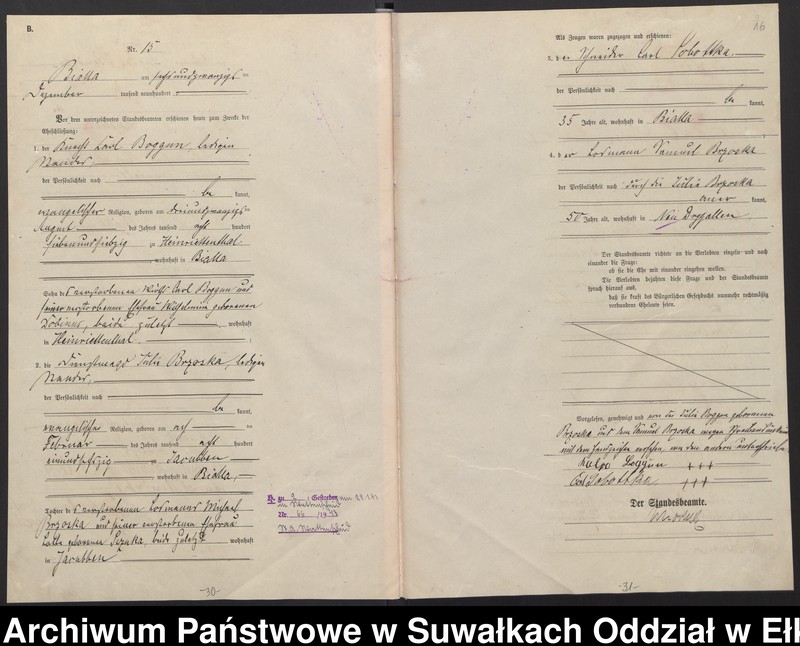 B.
Nr. 15
Bialla am sechsundzwanzigsten
Dezember tausend neunhundert
Vor dem unterzeichneten Standesbeamten erschienen heute zum Zwecke der
Eheschließung:
1. der Knecht Karl Boggun, ledigen
Standes,
der Persönlichkeit nach
be kannt,
evangelischer Religion, geboren am dreiundzwanzigsten
August des Jahres tausend acht hundert
siebenundsiebzig zu Heinriettenthal
, wohnhaft in Bialla
Sohn des verstorbenen Wirth Carl Boggun und
seiner verstorbenen Ehefrau Wilhelmine geborenen
beide zuletzt wohnhaft
in Heinriettenthal
2. die Dienstmagd Julie Brzoska, ledigen
Standes,
der Persönlichkeit nach
be kannt,
evangelischer Religion, geboren am
Februar des Jahres tausend acht hundert
zu Jacubben
, wohnhaft in Bialla,
Tochter des verstorbenen Losmanns Michael
Brzoska und seiner verstorbenen Ehefrau
geborenen beide zuletzt wohnhaft
in Jacubben
H. zu 2 Gestorben am
in
Nr.
St. A.
-30-
16
Als Zeugen waren zugezogen und erschienen:
3. der Schneider Carl Sobottka
der Persönlichkeit nach
be kannt,
35 Jahre alt, wohnhaft in Bialla
4. der Losmann Samuel Brzoska
der Persönlichkeit nach durch die Julie Brzoska
aner kannt,
50 Jahre alt, wohnhaft in Neu Drygallen
Der Standesbeamte richtete an die Verlobten einzeln und nach
einander die Frage:
ob sie die Ehe mit einander eingehen wollen.
Die Verlobten bejahten diese Frage und der Standesbeamte
sprach hierauf aus,
daß sie kraft des Bürgerlichen Gesetzbuchs nunmehr rechtmäßig
verbundene Eheleute seien.
Vorgelesen, genehmigt und von der Julie Boggun geborenen
Brzoska und dem Samuel Brzoska wegen
mit dem Handzeichen versehen, von den anderen unterschrieben
Boggun +++
Carl Sobottka +++
Der Standesbeamte.
-31-
Archiwum Państwowe w Suwałkach Oddział w Ełk